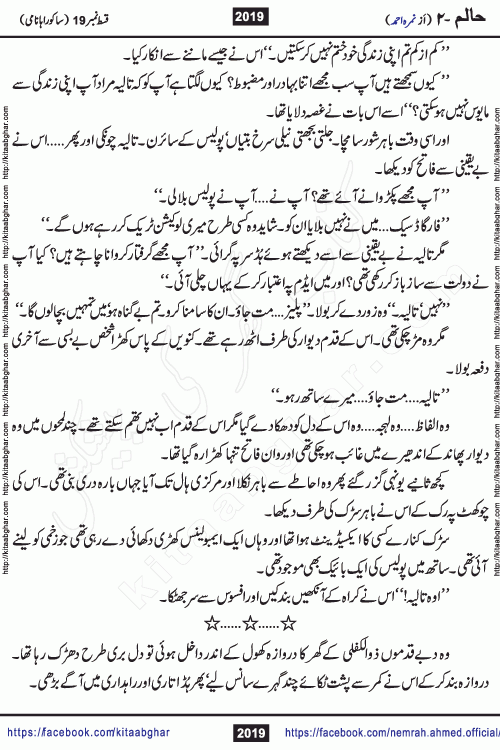 حالم -۲ (از نمرہ احمد)
2019
قسط نمبر 19 (ساکورا ہانامی)
’’کم از کم تم اپنی زندگی خود ختم نہیں کر سکتیں۔‘‘ اس نے جیسے ماننے سے انکار کیا۔
’’کیوں سمجھتے ہیں آپ سب مجھے اتنا بہادر اور مضبوط؟ کیوں لگتا ہے آپ کو کہ تالیہ مراد آپ اپنی زندگی سے
مایوس نہیں ہو سکتی؟‘‘ اسے اس بات نے غصہ دلایا تھا۔
اور اسی وقت باہر شور سا مچا۔ جلتی بجھتی نیلی سرخ بتیاں‘ پولیس کے سائرن۔ تالیہ چونکی اور پھر.....اس نے
بے یقینی سے فاتح کو دیکھا۔
’’آپ مجھے پکڑوانے آئے تھے؟ آپ نے....آپ نے پولیس بلالی۔‘‘
’’فار گاڈ سیک...میں نے نہیں بلایا ان کو۔ شاید وہ کسی طرح میری لوکیشن ٹریک کر رہے ہوں گے۔‘‘
مگر تالیہ نے بے یقینی سے اسے دیکھتے ہوئے ہڈ سر پہ گرائی۔ ’’آپ مجھے گرفتار کروانا چاہتے ہیں؟ کیا آپ
نے دولت سے ساز باز کر رکھی تھی؟ اور میں ایڈم پہ اعتبار کر کے یہاں چلی آئی۔‘‘
’’نہیں‘ تالیہ۔‘‘ وہ زور دے کر بولا۔ ’’پلیز....مت جاؤ۔ ان کا سامنا کرو۔ تم بے گناہ ہو‘ میں تمہیں بچالوں گا۔‘‘
مگر وہ مڑ چکی تھی۔ اس کے قدم دیوار کی طرف اٹھ رہے تھے۔ کنویں کے پاس کھڑا شخص بے بسی سے آخری
دفعہ بولا۔
’’تالیہ....مت جاؤ....میرے ساتھ رہو۔‘‘
وہ الفاظ....وہ لہجہ....وہ اس کے دل کو دھکا دے گیا مگر اس کے قدم اب نہیں تھم سکتے تھے۔ چند لمحوں میں وہ
دیوار پھاند کے اندھیرے میں غائب ہو چکی تھی اور وان فاتح تنہا کھڑا رہ گیا تھا۔
کچھ ثانیے یونہی گزر گئے پھر وہ احاطے سے باہر نکلا اور مرکزی ہال تک آیا جہاں بارہ دری بنی تھی۔ اس کی
چوکھٹ پہ رک کے اس نے باہر سڑک کی طرف دیکھا۔
سڑک کنارے کسی کا ایکسیڈینٹ ہوا تھا اور وہاں ایک ایمبولینس کھڑی دکھائی دے رہی تھی جو زخمی کو لینے
آئی تھی۔ ساتھ میں پولیس کی ایک بائیک بھی موجود تھی۔
’’اوہ تالیہ!‘‘ اس نے کراہ کے آنکھیں بند کیں اور افسوس سے سر جھٹکا۔
☆......☆......☆
وہ دبے قدموں ذوالکفلی کے گھر کا دروازہ کھول کے اندر داخل ہوئی تو دل بری طرح دھڑک رہا تھا۔
دروازہ بند کر کے اس نے کمر سے پشت ٹکائے چند گہرے سانس لیے‘ پھر ہڈ اتاری اور راہداری میں آگے بڑھی۔
https://facebook.com/kitaabghar
2019
https://facebook.com/nemrah.ahmed.official/
http://kitaabghar.com http://kitaabghar.com http://kitaabghar.com http://kitaabghar.com
http://kitaabghar.com http://kitaabghar.com http://kitaabghar.com http://kitaabghar.com
kitaabghar.com